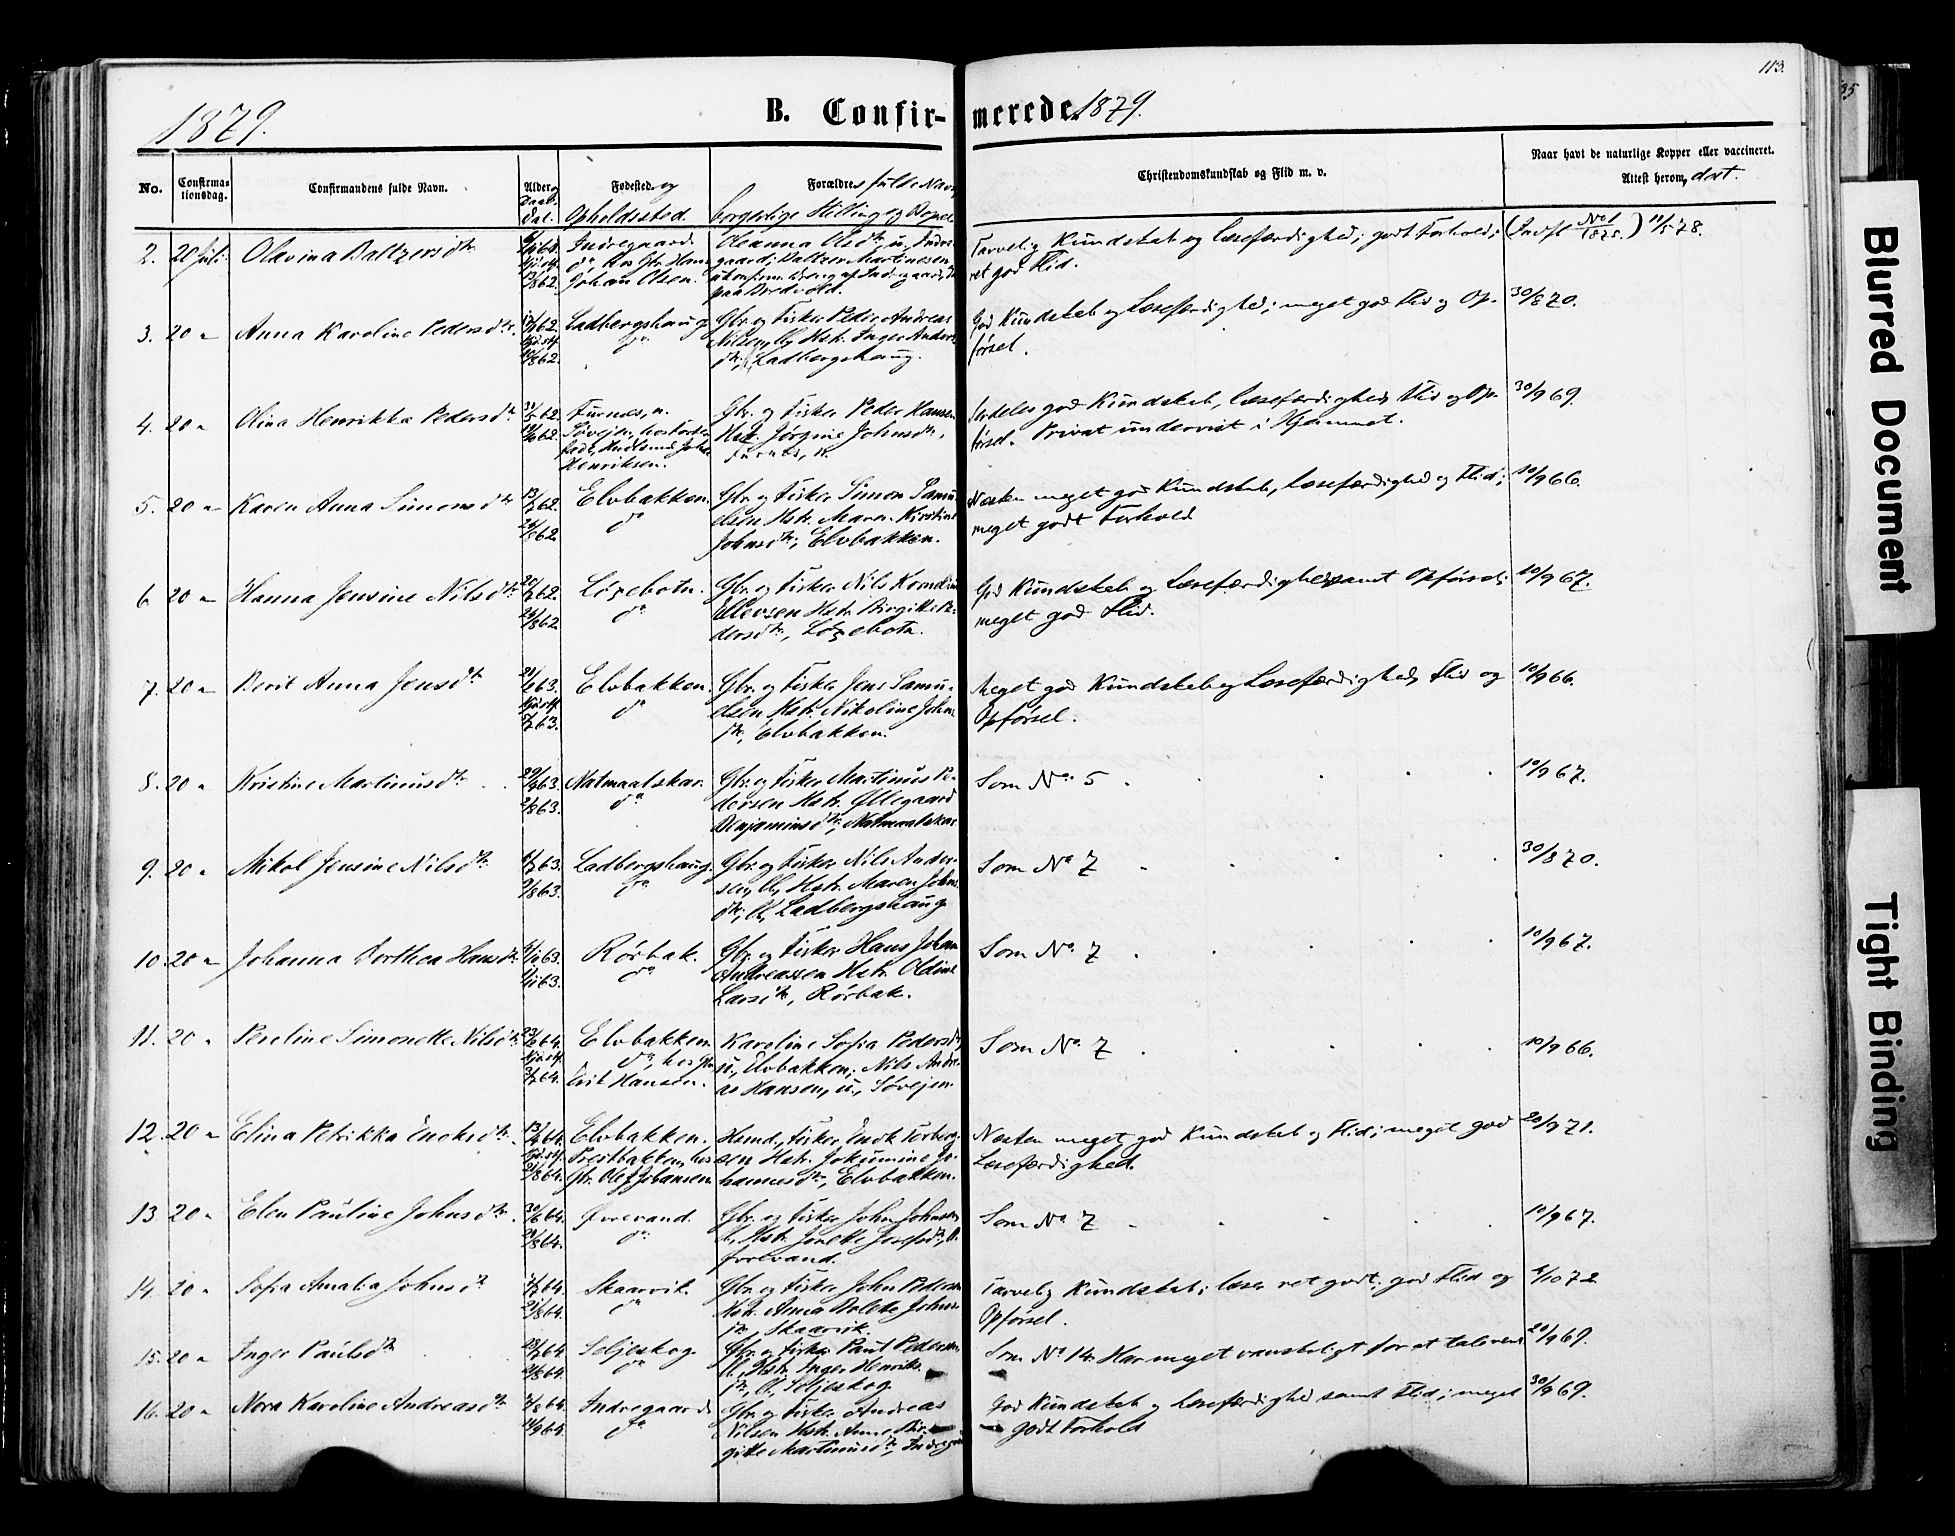 113.
35
1879.
B. Confir-
merede. 1879.
No.
Confirma-
tionsdag.
Confirmandens fulde Navn.
Alder og
Daab.
Dat.
Fødested og
Opholdssted.
Forældres fulde Navn,
borgerlige Stilling og Bopæl
Christendomskundskab og Flid m. v.
Naar havt de naturlige Kopper eller vaccineret.
Attest herom, dat.
2. 20 Juli. Olavina Baltzersdtr.
Indregaard.
do hos Gbr. Hans
Johan Olsen.
Oleanna Olsdtr. u, Indre-
gaard; Baltzer Martinesen
paa Bredvold.
Tarvelig Kundskab og Læsefærdighed; godt Forhold;
ret god Flid.
(Indfl No 1/1875.) 11/5 78.
3. 20 " Anna Karoline Pedersdtr.
Ladbergshaug
do
Gbr. og Fisker Peder Andreas
Nilsen, Hstr. Inger Anders
dtr., Ladbergshaug.
God Kundskab og Læsefærdighed; meget god Flid og Op-
førsel.
30/8 70.
4. 20 " Olina Henrikka Pedersdtr.
Furnes, n.
Henriksen.
Gbr. og Fisker Peder Hansen
Hstr. Jørgine Johnsdtr.,
Furnes, n.
Særdeles god Kundskab, Læsefærdighed, Flid og Op-
førsel. Privat undervist i Hjemmet.
30/9 69.
5. 20 " Karen Anna Simonsdtr.
Elvbakken.
do
Gbr. og Fisker Simon Samu-
elsen Hstr. Maren Kirstine
Johnsdtr., Elvbakken.
Næsten meget god Kundskab, Læsefærdighed og Flid;
meget godt Forhold
10/9 66.
6. 20 " Hanna Jensine Nilsdtr.
Løxebotn.
do
Gbr. og Fisker Nils Kornelius
Ellevsen Hstr. Birgitte Pe-
dersdtr., Løxebotn.
God Kundskab og Læsefærdighed samt Opførsel;
meget god Flid.
10/9 67.
7. 20 " Berit Anna Jensdtr.
Elvbakken.
do
Gbr. og Fisker Jens Samu-
elsen Hstr. Nikoline John
dtr., Elvbakken.
Meget god Kundskab og Læsefærdighed, Flid og
Opførsel.
10/9 66.
8. 20 " Kristine Martinusdtr.
29/4 63.
Natmaalskar.
do
Gbr. og Fisker Martinus Pe-
dersen Hstr. Øllegaard
Benjaminsdtr., Natmaalskar
Som No. 5
10/9 67.
9. 20 " Mikol Jensine Nilsdtr.
Ladbergshaug.
do
Gbr. og Fisker Nils Ander-
sen, Hstr. Maren Johns
dtr., Ladbergshaug
Som No. 7
30/8 70.
10. 20 " Johanna Dorthea Hansdtr.
Rørbak.
do
Gbr. og Fisker Hans Johan
Andreassen Hstr. Oldine
Larsdtr., Rørbak.
Som No. 7
10/9 67.
11. 20 " Peroline Simonette Nilsdtr.
Elvbakken.
do, hos Gbr.
Erik Hansen.
Karoline Sofia Pedersdtr.
u., Elvbakken; Nils Andre-
as Hansen, u., Søvejen
Som No. 7
10/9 66.
12. 20 " Elina Petrikka Enoksdtr.
Elvbakken.
Prestbakken, hos
Gbr. Ole J. Johansen
Husmd., Fisker Enok Torberg-
sen Hstr. Jokumine Jo-
hannesdtr., Elvbakken.
Næsten meget god Kundskab og Flid; meget god
Læsefærdighed.
20/9 71.
13. 20 " Elen Pauline Johnsdtr.
30/6 64.
Øvrevand.
do
Gbr. og Fisker John Johnsen
Hstr. Jonette Josefsdtr.,
Øvrevand.
Som No. 7
10/9 67.
14. 20 " Sofia Amalia Johnsdtr.
Skaarvik.
do
Gbr. og Fisker John Pedersen
Hstr. Anna Bolette Johns
dtr. Skaarvik.
Tarvelig Kundskab; læser ret godt; god Flid og
Opførsel.
10 72
15. 20 " Inger Paulsdtr.
Seljeskog
do
Gbr. og Fisker Paul Pedersen
Hstr. Inger Henriks
dtr., Seljeskog.
Som No 14. Har meget vanskeligt for at tale rent
20/9 69.
16. 20 " Nora Karoline Andreasdtr.
Indregaard.
do
Gbr. og Fisker Andreas
Nilsen Hstr. Anne Bir-
gitte Martinusdtr., Indregaard
God Kundskab og Læsefærdighed samt Flid; meget
godt Forhold
30/9 69.
Blurred Document
Tight Binding